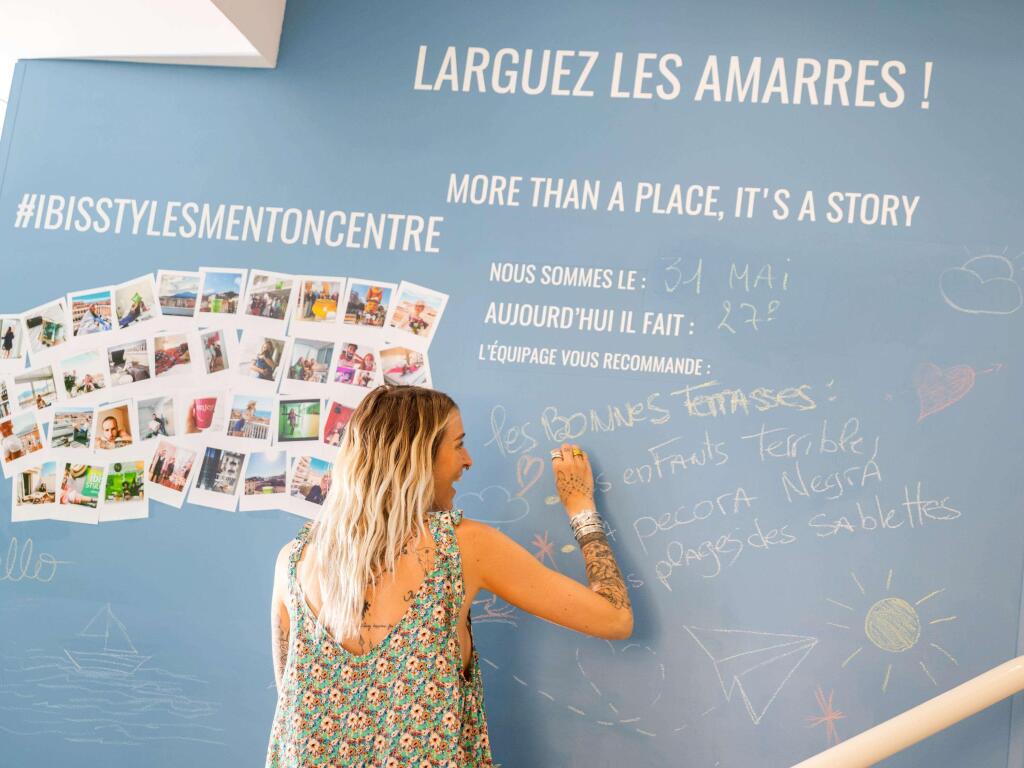 LARGUEZ LES AMARRES !
MORE THAN A PLACE, IT'S A STORY
#IBISSTYLESMENTONCENTRE
NOUS SOMMES LE : 31 MAi
AUJOURD'HUI IL FAIT : 27°
L'ÉQUIPAGE VOUS RECOMMANDE :
les BONNES TerrASSES :
s enfAnts Terrible,
pecorA NegrA
plages des SAblettes
ello